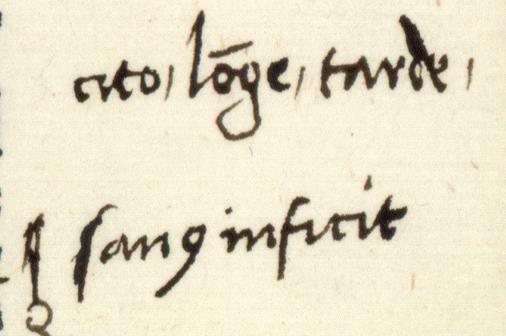 cito, lōge, tarde,
sanꝯ inficit